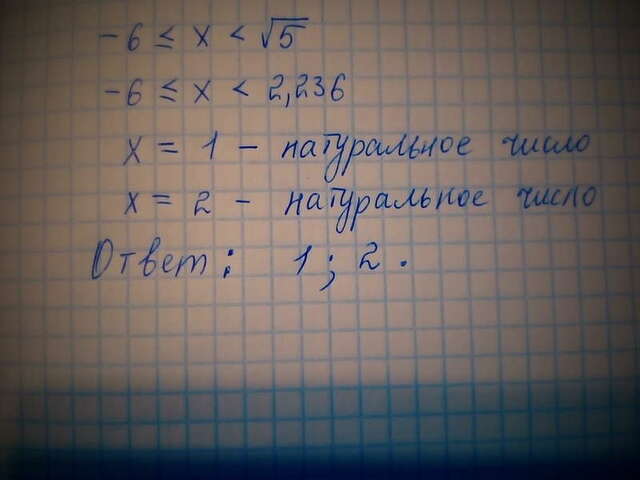 -6 ≤ x < √5
-6 ≤ x < 2,236
x = 1 - натуральное число
x = 2 - натуральное число
Ответ: 1; 2.